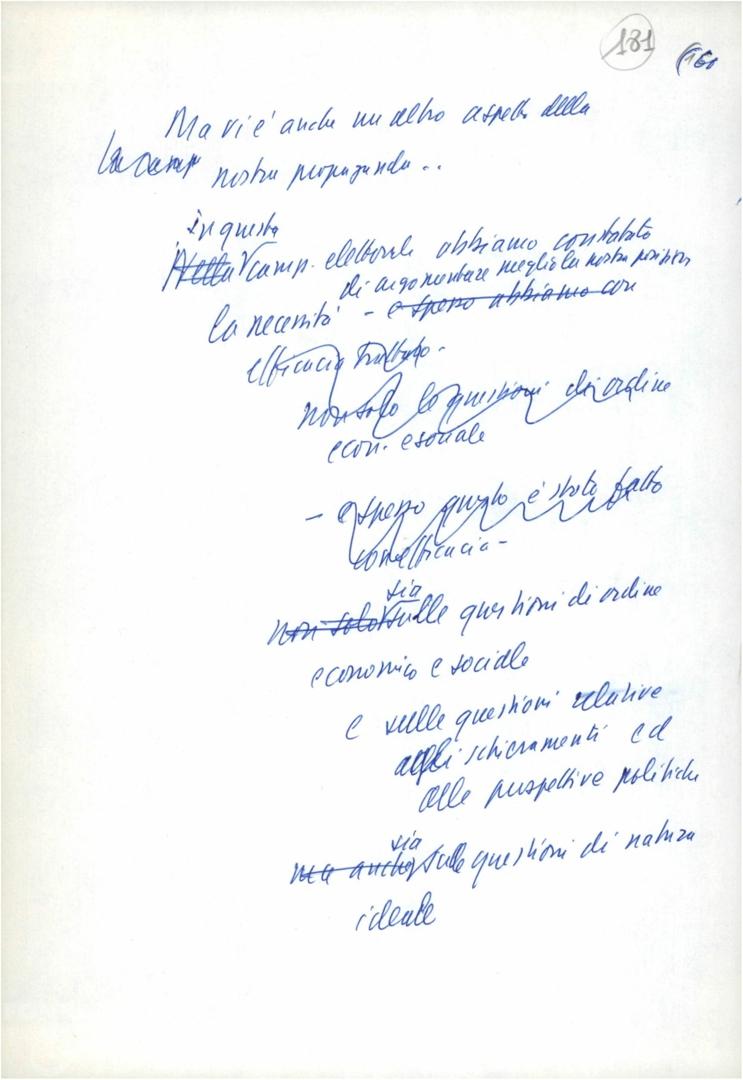 181 (160
Ma vi è anche un altro aspetto della
La camp
nostra propaganda..
in questa
Nella camp. elettorale abbiamo constatato
di argomentare meglio la nostra posizion
la necessità - e spesso abbiamo con
efficacia trattato -
non solo le questioni di ordine
econ. e sociale
- e spesso questo è stato fatto
con efficacia -
sia
non solo sulle questioni di ordine
economico e sociale
e sulle questioni relative
agli schieramenti ed
alle prospettive politiche
sia
ma anche sulle questioni di natura
ideale